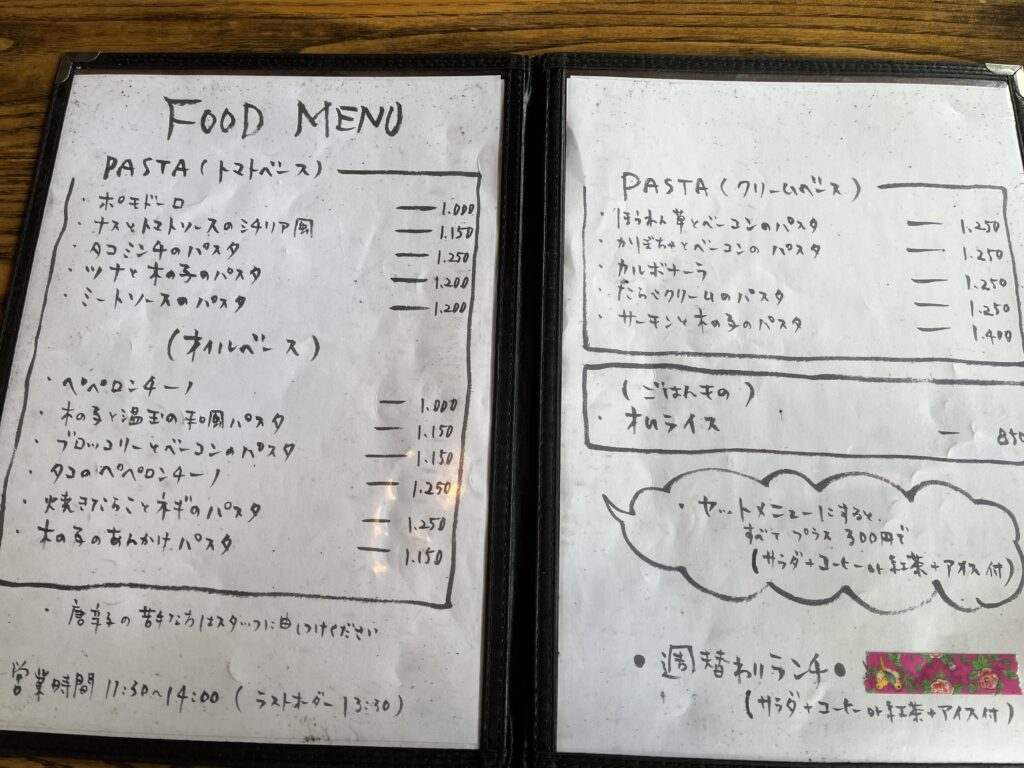 FOOD MENU
PASTA (トマトベース)
・ポモドーロ — 1.000
・ナスとトマトソースのシチリア風 — 1.150
・タコミンチのパスタ — 1.250
・ツナと木の子のパスタ — 1.200
・ミートソースのパスタ — 1.200
(オイルベース)
・ペペロンチーノ — 1.000
・木の子と温玉の和風パスタ — 1.150
・ブロッコリーとベーコンのパスタ — 1.150
・タコのペペロンチーノ — 1.250
・焼きたらことネギのパスタ — 1.250
・木の子のあんかけパスタ — 1.150
・唐辛子の苦手な方はスタッフに申しつけください
営業時間 11:30〜14:00 (ラストオーダー 13:30)
PASTA (クリームベース)
・ほうれん草とベーコンのパスタ — 1.250
・かぼちゃとベーコンのパスタ — 1.250
・カルボナーラ — 1.250
・たらこクリームのパスタ — 1.250
・サーモンと木の子のパスタ — 1.400
(ごはんもの)
・オムライス — 850
・セットメニューにすると、
すべて プラス 300円で
(サラダ+コーヒー or 紅茶+アイス付)
●週替わりランチ●
(サラダ+コーヒー or 紅茶+アイス付)